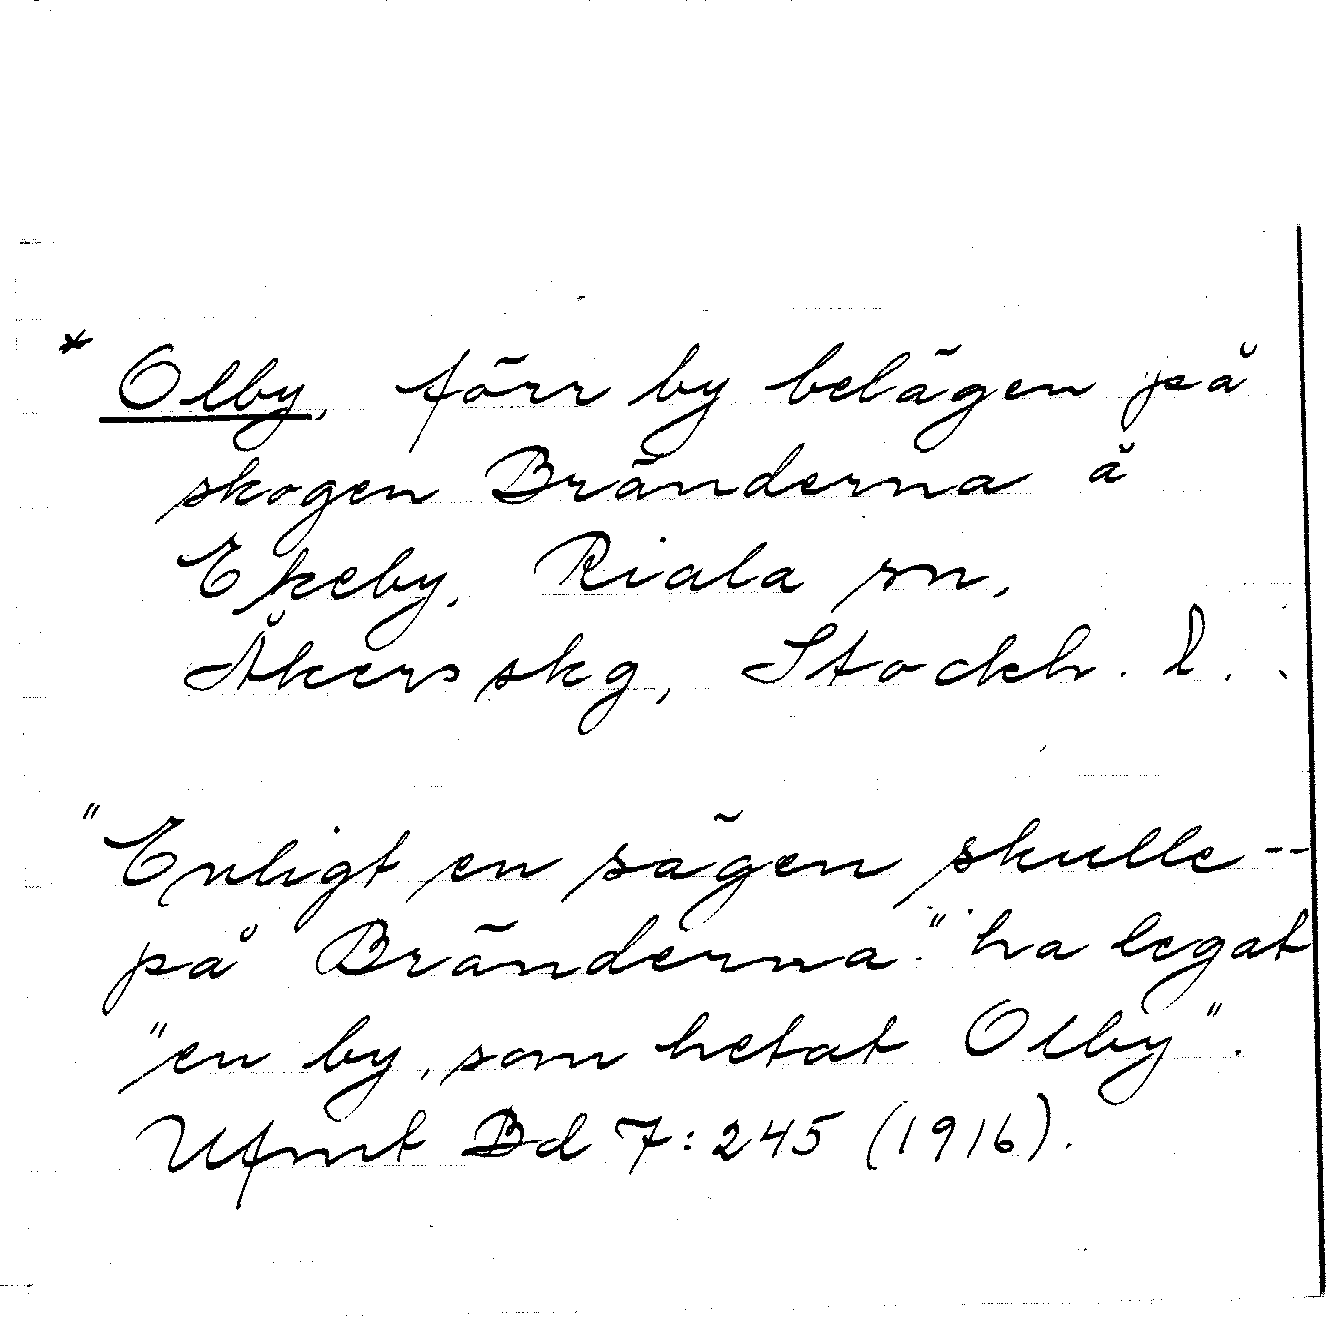 * Olby, förr by belägen på
skogen Bränderna å
Ekeby, Riala sn,
Åkers skg, Stockh. l.
"Enligt en sägen skulle --
på Bränderna" ha legat
"en by, som hetat Olby".
Ufmt Bd 7:245 (1916).